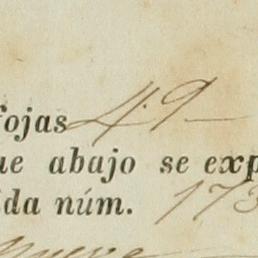 fojas 49
ue abajo se exp
da núm. 173
nueve